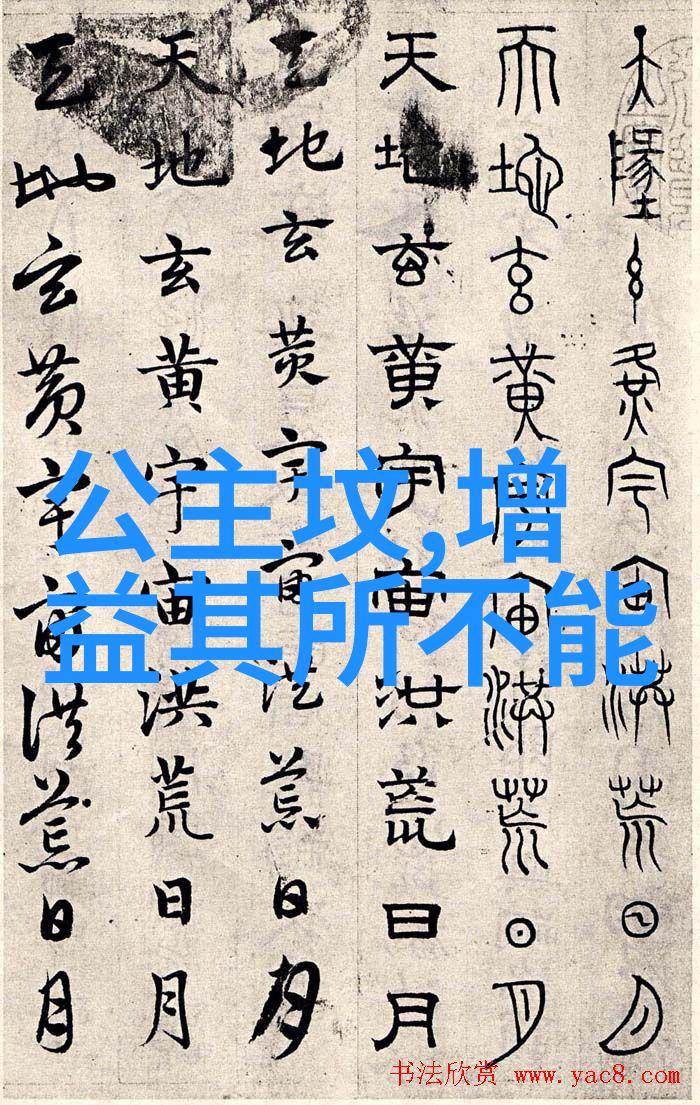 天墬玄黃宇宙洪荒日月
天地玄黃宇宙洪荒日月
天地玄黃宇宙洪荒日月
天地玄黃宇宙洪荒日月
天地玄黃宇宙洪荒日月
天地玄黃宇宙洪荒日月
公主坟,增
益其所不能
书法欣赏 www.yac8.com